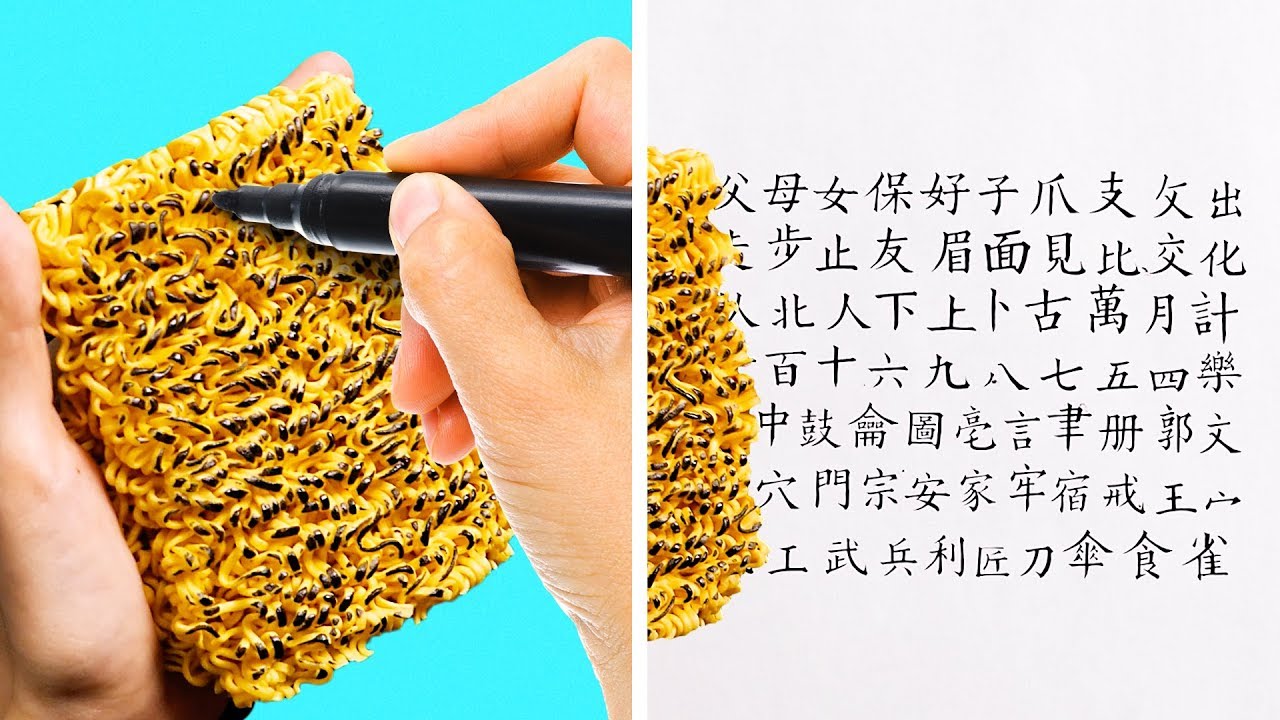 父母女保好子爪支攵出
步止友眉面見比交化
北人下上卜古萬月計
百十六九八七五四樂
中鼓龠圖亳言聿册郭文
穴門宗安家牢宿戒王宀
工武兵利匠刀傘食雀